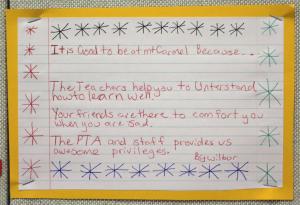 It is Good to be at mt Carmel Because...
The Teachers help you to Unterstand
how to learn well.
Your friends are there to comfort you
when you are sad.
The PTA and staff provides us
awesome privileges.
By Wilbar